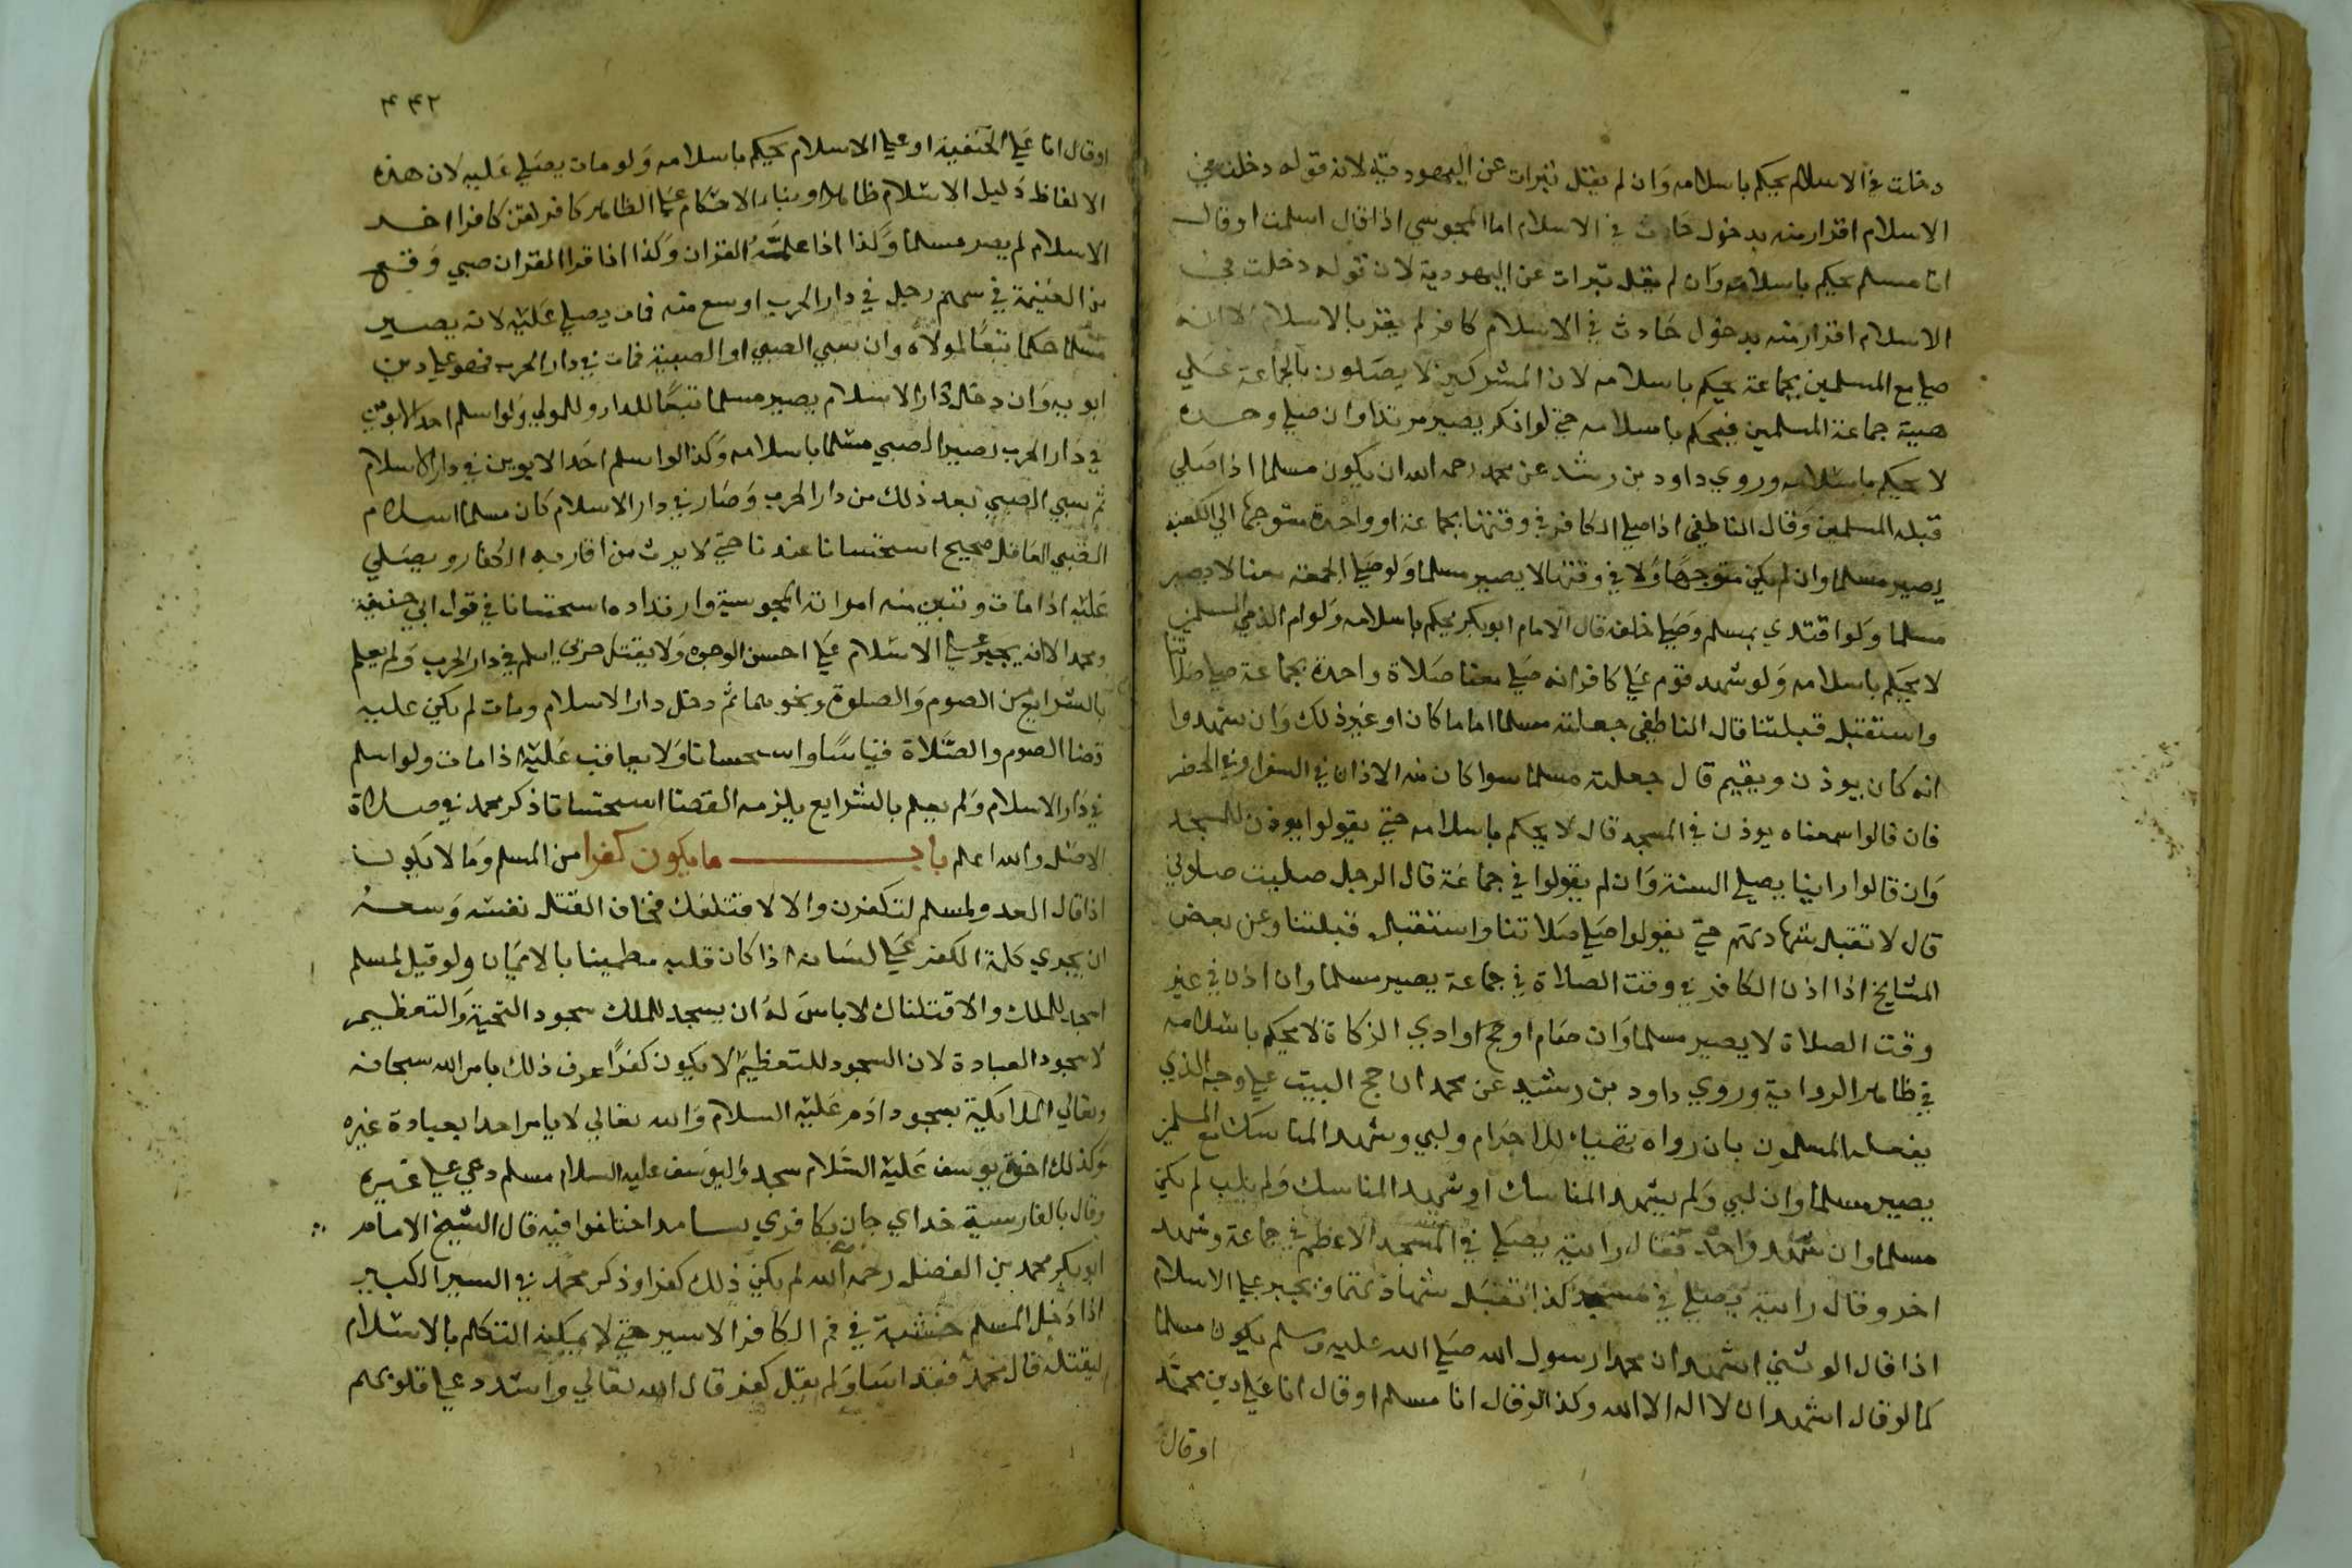 دخلت في الاسلام يحكم باسلامه وان لم يقل تبرات عن اليهودية لانه قوله دخلت في
الاسلام اقرار منه بدخول حادث في الاسلام اما المجوسي اذا قال اسلمت او قال
انا مسلم يحكم باسلامه وان لم يقل تبرات عن اليهودية لان قوله دخلت في
الاسلام اقرار منه بدخول حادث في الاسلام كافر لم يقر بالاسلام الا انه
صلي مع المسلمين بجماعة يحكم باسلامه لان المشركين لا يصلون بالجماعة علي
هيية جماعة المسلمين فيحكم باسلامه حتي لو انكر يصير مرتدا وان صلي وحده
لا يحكم باسلامه وروي داود بن رشد عن محمد رحمه الله ان يكون مسلما اذا صلي
قبلة المسلمين وقال الناطفي اذا صلي الكافر في وقتها بجماعة او واحدة متوجها الي الكعبة
يصير مسلما وان لم يكن متوجها ولا في وقتها لا يصير مسلما ولو صلي الجمعة معنا لا يصير
مسلما ولو اقتدي بمسلم وصلي خلفه قال الامام ابو بكر يحكم باسلامه ولو ام الذمي المسلمين
لا يحكم باسلامه ولو شهد قوم علي كافر انه صلي معنا صلاة واحدة بجماعة صلي صلاتنا
واستقبل قبلتنا قال الناطفي جعلته مسلما اماما كان او غير ذلك وان شهدوا
انه كان يوذن ويقيم قال جعلته مسلما سوا كان منه الاذان في السفر او في الحضر
فان قالوا سمعناه يوذن في المسجد قال لا يحكم باسلامه حتي يقولوا يوذن للمسجد
وان قالوا راينا يصلي السنة وان لم يقولوا في جماعة قال الرجل صليت صلوتي
قال لا تقبل شهادتهم حتي يقولوا صلي صلاتنا واستقبل قبلتنا وعن بعض
المشايخ اذا اذن الكافر في وقت الصلاة في جماعة يصير مسلما وان اذن في غير
وقت الصلاة لا يصير مسلما وان صام او حج او ادي الزكاة لا يحكم باسلامه
في ظاهر الرواية وروي داود بن رشيد عن محمد ان حج البيت علي وجه الذي
يفعله المسلمون بان رواه للاحرام ولبي وشهد المناسك مع المسلمين
يصير مسلما وان لبي ولم يشهد المناسك او شهد المناسك ولم يلب لم يكن
مسلما وان شهد واحد فقال رايته يصلي في المسجد الاعظم في جماعة وشهد
اخر وقال رايته يصلي في مسجد كذا تقبل شهادتهما ويجبر علي الاسلام
اذا قال الوثني اشهد ان محمدا رسول الله صلي الله عليه وسلم يكون مسلما
كما لو قال اشهد ان لا اله الا الله وكذا لو قال انا مسلم او قال انا علي دين محمد
او قال
٤٤٢
او قال انا علي الحنفية او علي الاسلام يحكم باسلامه ولو مات يصلي عليه لان هذه
الالفاظ دليل الاسلام ظاهرا وبناء الاحكام علي الظاهر كافر لقن كافرا اخر
الاسلام لم يصر مسلما وكذا اذا علمته القران وكذا اذا قرا القران صبي وقع
من الغنيمة في سهم رجل في دار الحرب او بيع منه فمات يصلي عليه لانه يصير
مسلما حكما تبعا لمولاه وان سبي الصبي او الصبية فمات في دار الحرب فهو علي دين
ابويه وان دخل دار الاسلام يصير مسلما تبعا للدار وللمولي ولو اسلم احد الابوين
في دار الحرب يصير الصبي مسلما باسلامه وكذا لو اسلم احد الابوين في دار الاسلام
ثم سبي الصبي بعد ذلك من دار الحرب وصار في دار الاسلام كان مسلما اسلام
الصبي العاقل صحيح استحسانا عندنا حتي لا يرث من اقاربه الكفار ويصلي
عليه اذا مات وتبين منه امراته المجوسية وارتداده استحسانا في قول ابي حنيفة
ومحمد الا انه يجبر علي الاسلام علي احسن الوجوه ولا يقتل حربي اسلم في دار الحرب ولم يعلم
بالشرايع من الصوم والصلوة ونحوهما ثم دخل دار الاسلام ومات لم يكن عليه
قضا الصوم والصلاة قياسا واستحسانا ولا يعاقب عليه اذا مات ولو اسلم
في دار الاسلام ولم يعلم بالشرايع يلزمه القضا استحسانا ذكر محمد في صلاة
الاصل والله اعلم باب ما يكون كفرا من المسلم وما لا يكون
اذا قال العدو لمسلم لتكفرن والا لاقتلنك فخاف القتل نفسه وسعه
ان يجري كلمة الكفر علي لسانه اذا كان قلبه مطمينا بالايمان ولو قيل لمسلم
اسجد للملك والا قتلناك لا باس له ان يسجد للملك سجود التحية والتعظيم
لا سجود العبادة لان السجود للتعظيم لا يكون كفرا عرف ذلك بامر الله سبحانه
وتعالي الملايكة بسجود ادم عليه السلام والله تعالي لا يامر احدا بعبادة غيره
وكذلك اخوة يوسف عليه السلام سجدوا ليوسف عليه السلام مسلم دعي علي غيره
وقال بالفارسية خداي جان بكافري اختلفوا فيه قال الشيخ الامام
ابو بكر محمد بن الفضل رحمه الله لم يكن ذلك كفرا وذكر محمد في السير الكبير
اذا دخل المسلم خشبة في فم الكافر الاسير حتي لا يمكنه التكلم بالاسلام
ليقتله قال محمد فقد اسا ولم يقل كفر قال الله تعالي واشدد علي قلوبهم